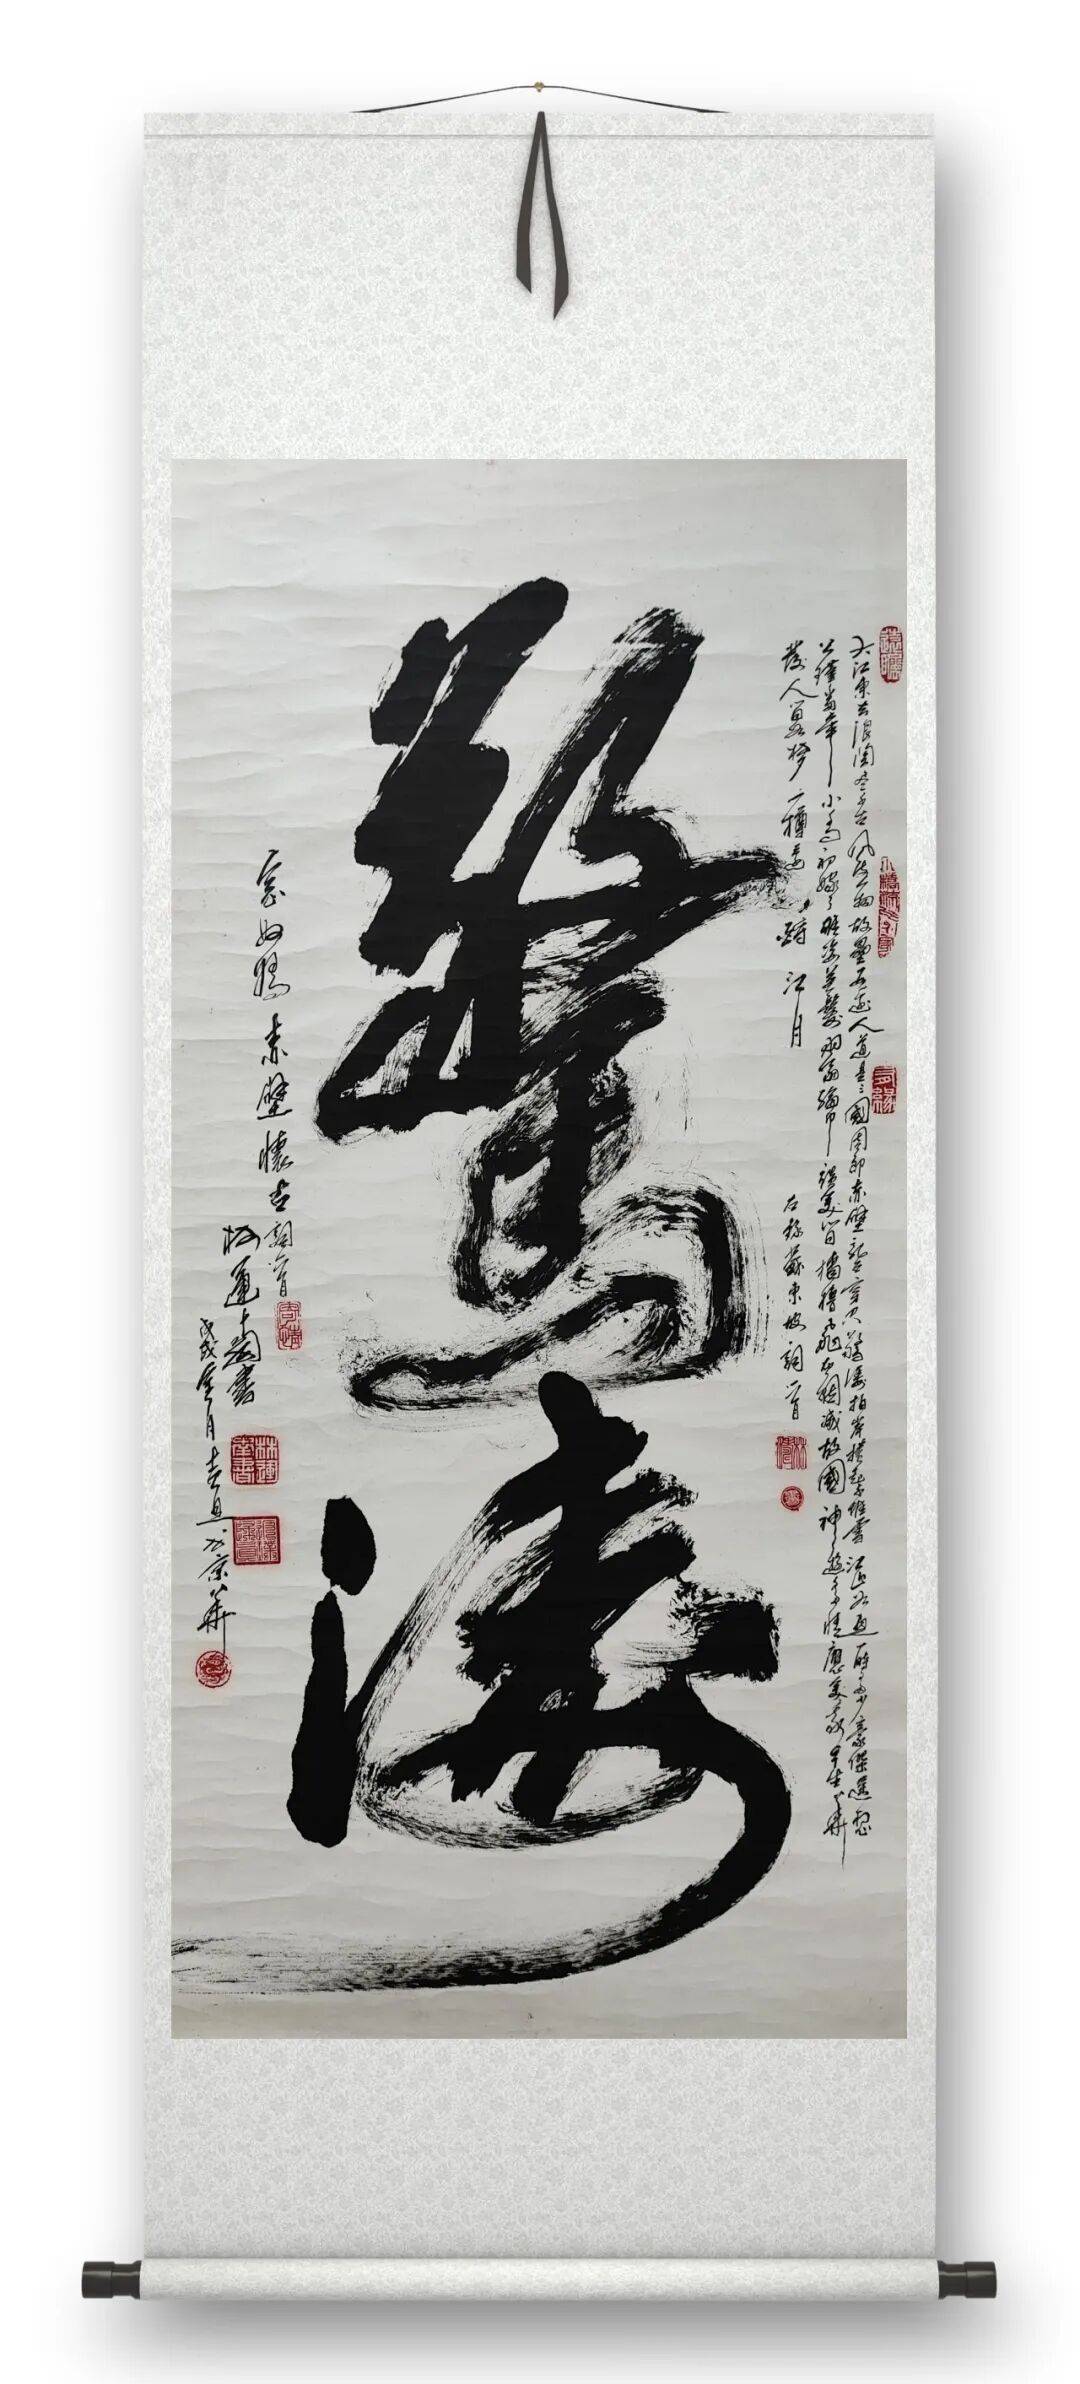 大江東去浪淘盡千古風流人物故壘西邊人道是三國周郎赤壁亂石穿空驚濤拍岸捲起千堆雪江山如畫一時多少豪傑遙想
公瑾當年小喬初嫁了雄姿英發羽扇綸巾談笑間檣櫓灰飛煙滅故國神遊多情應笑我早生華
髮人生如夢一樽還酹江月
右錄蘇東坡詞一首
驚濤
念奴嬌赤壁懷古詞一首
戊戌年月吉旦於京華